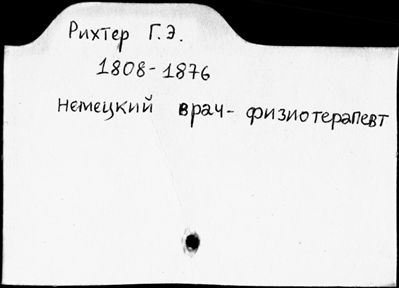 Рихтер Г.Э.
1808-1876
немецкий врач-физиотерапевт